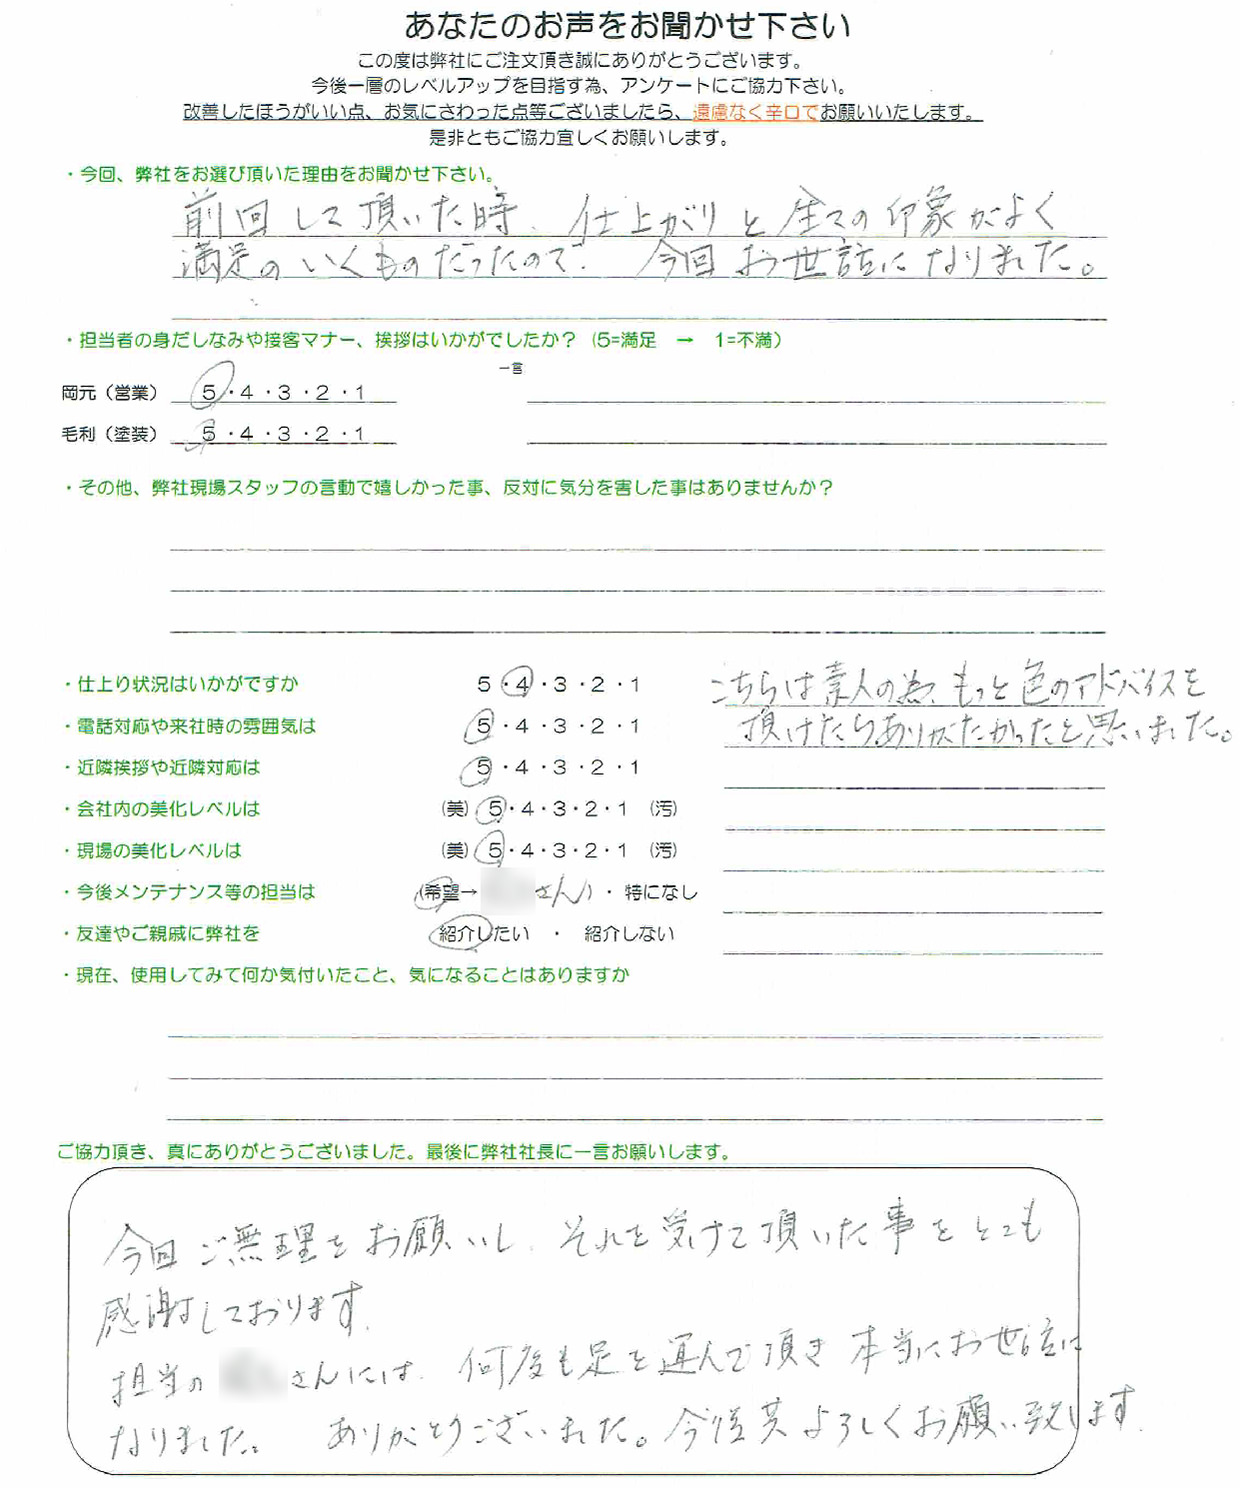 あなたのお声をお聞かせ下さい
この度は弊社にご注文頂き誠にありがとうございます。
今後一層のレベルアップを目指す為、アンケートにご協力下さい。
改善したほうがいい点、お気にさわった点等ございましたら、遠慮なく辛口でお願いいたします。
是非ともご協力宜しくお願いします。
・今回、弊社をお選び頂いた理由をお聞かせ下さい。
前回して頂いた時、仕上がりと全ての印象がよく
満足のいくものだったので、今回お世話になりました。
・担当者の身だしなみや接客マナー、挨拶はいかがでしたか？（5=満足 → 1=不満）
一言
岡元（営業） 5・4・3・2・1
毛利（塗装） 5・4・3・2・1
・その他、弊社現場スタッフの言動で嬉しかった事、反対に気分を害した事はありませんか？
・仕上り状況はいかがですか 5・4・3・2・1 こちらは素人の為、もっと色のアドバイスを
・電話対応や来社時の雰囲気は 5・4・3・2・1 頂けたらありがたかったと思いました。
・近隣挨拶や近隣対応は 5・4・3・2・1
・会社内の美化レベルは （美）5・4・3・2・1（汚）
・現場の美化レベルは （美）5・4・3・2・1（汚）
・今後メンテナンス等の担当は （希望→ さん）・特になし
・友達やご親戚に弊社を 紹介したい ・ 紹介しない
・現在、使用してみて何か気付いたこと、気になることはありますか
ご協力頂き、真にありがとうございました。最後に弊社社長に一言お願いします。
今回ご無理をお願いし、それを受けて頂いた事をとても
感謝しております。
担当の さんには、何度も足を運んで頂き本当にお世話に
なりました。 ありがとうございました。今後共よろしくお願い致します。